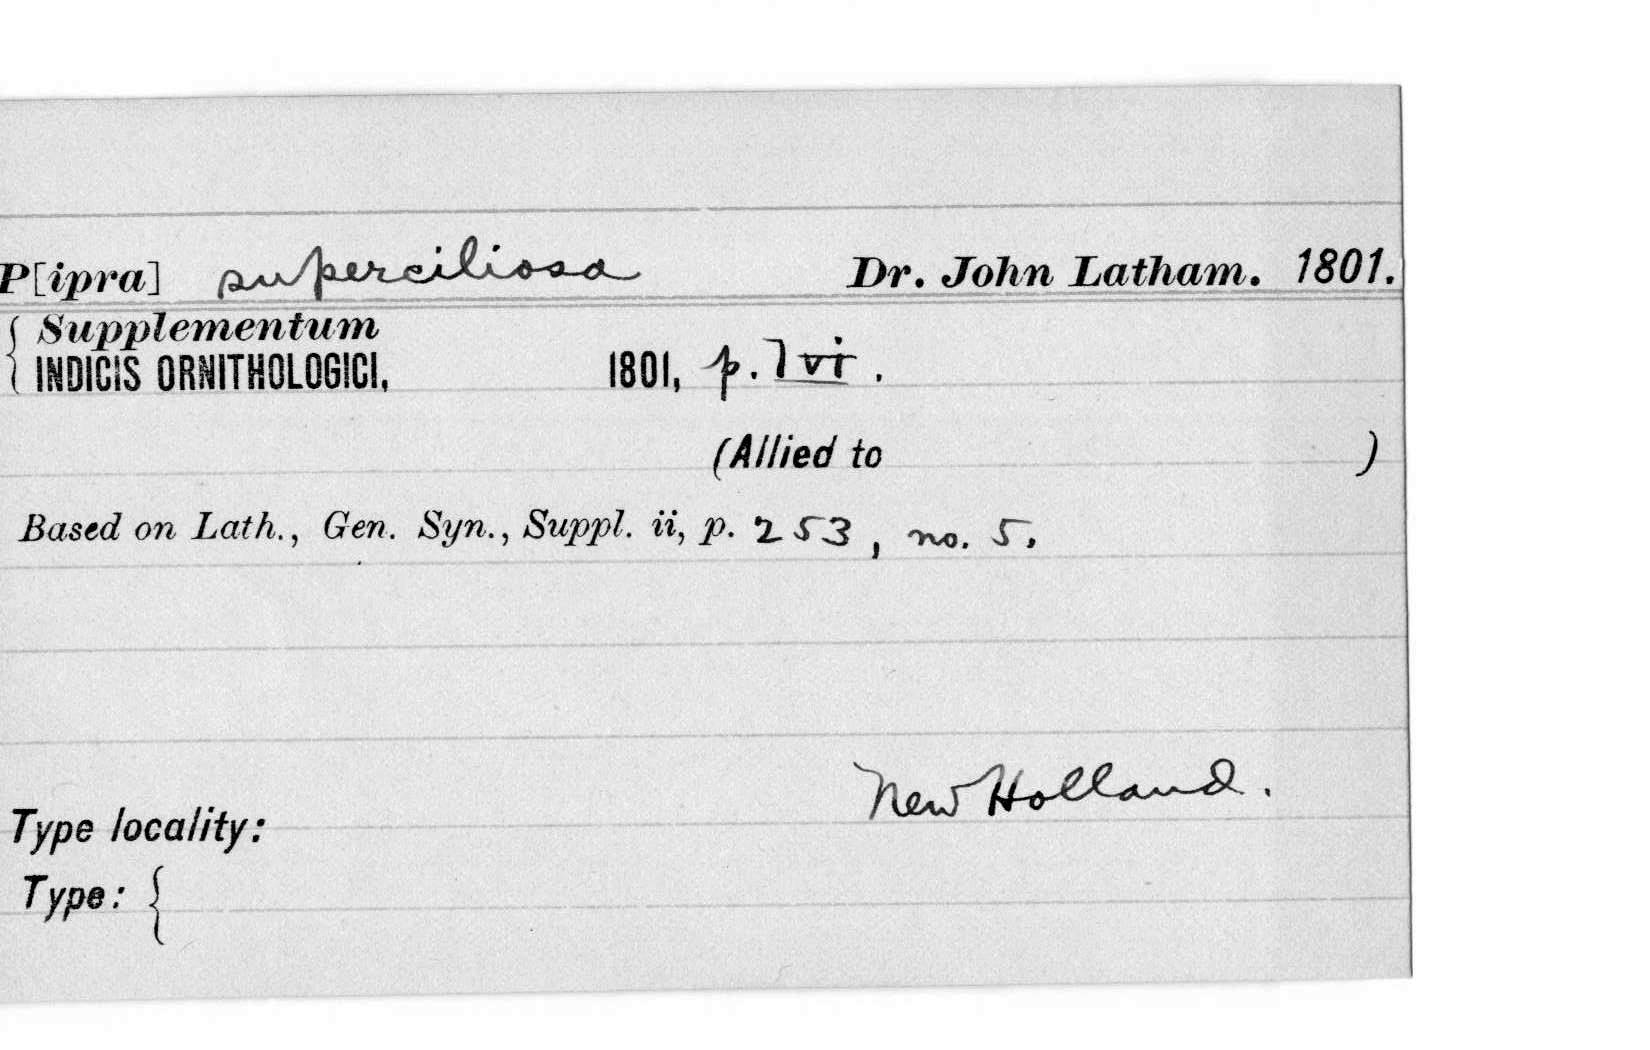 P[ipra] superciliosa Dr. John Latham. 1801.
{ Supplementum
INDICIS ORNITHOLOGICI, 1801, p. lvi.
(Allied to )
Based on Lath., Gen. Syn., Suppl. ii, p. 253, no. 5.
New Holland.
Type locality:
Type: {